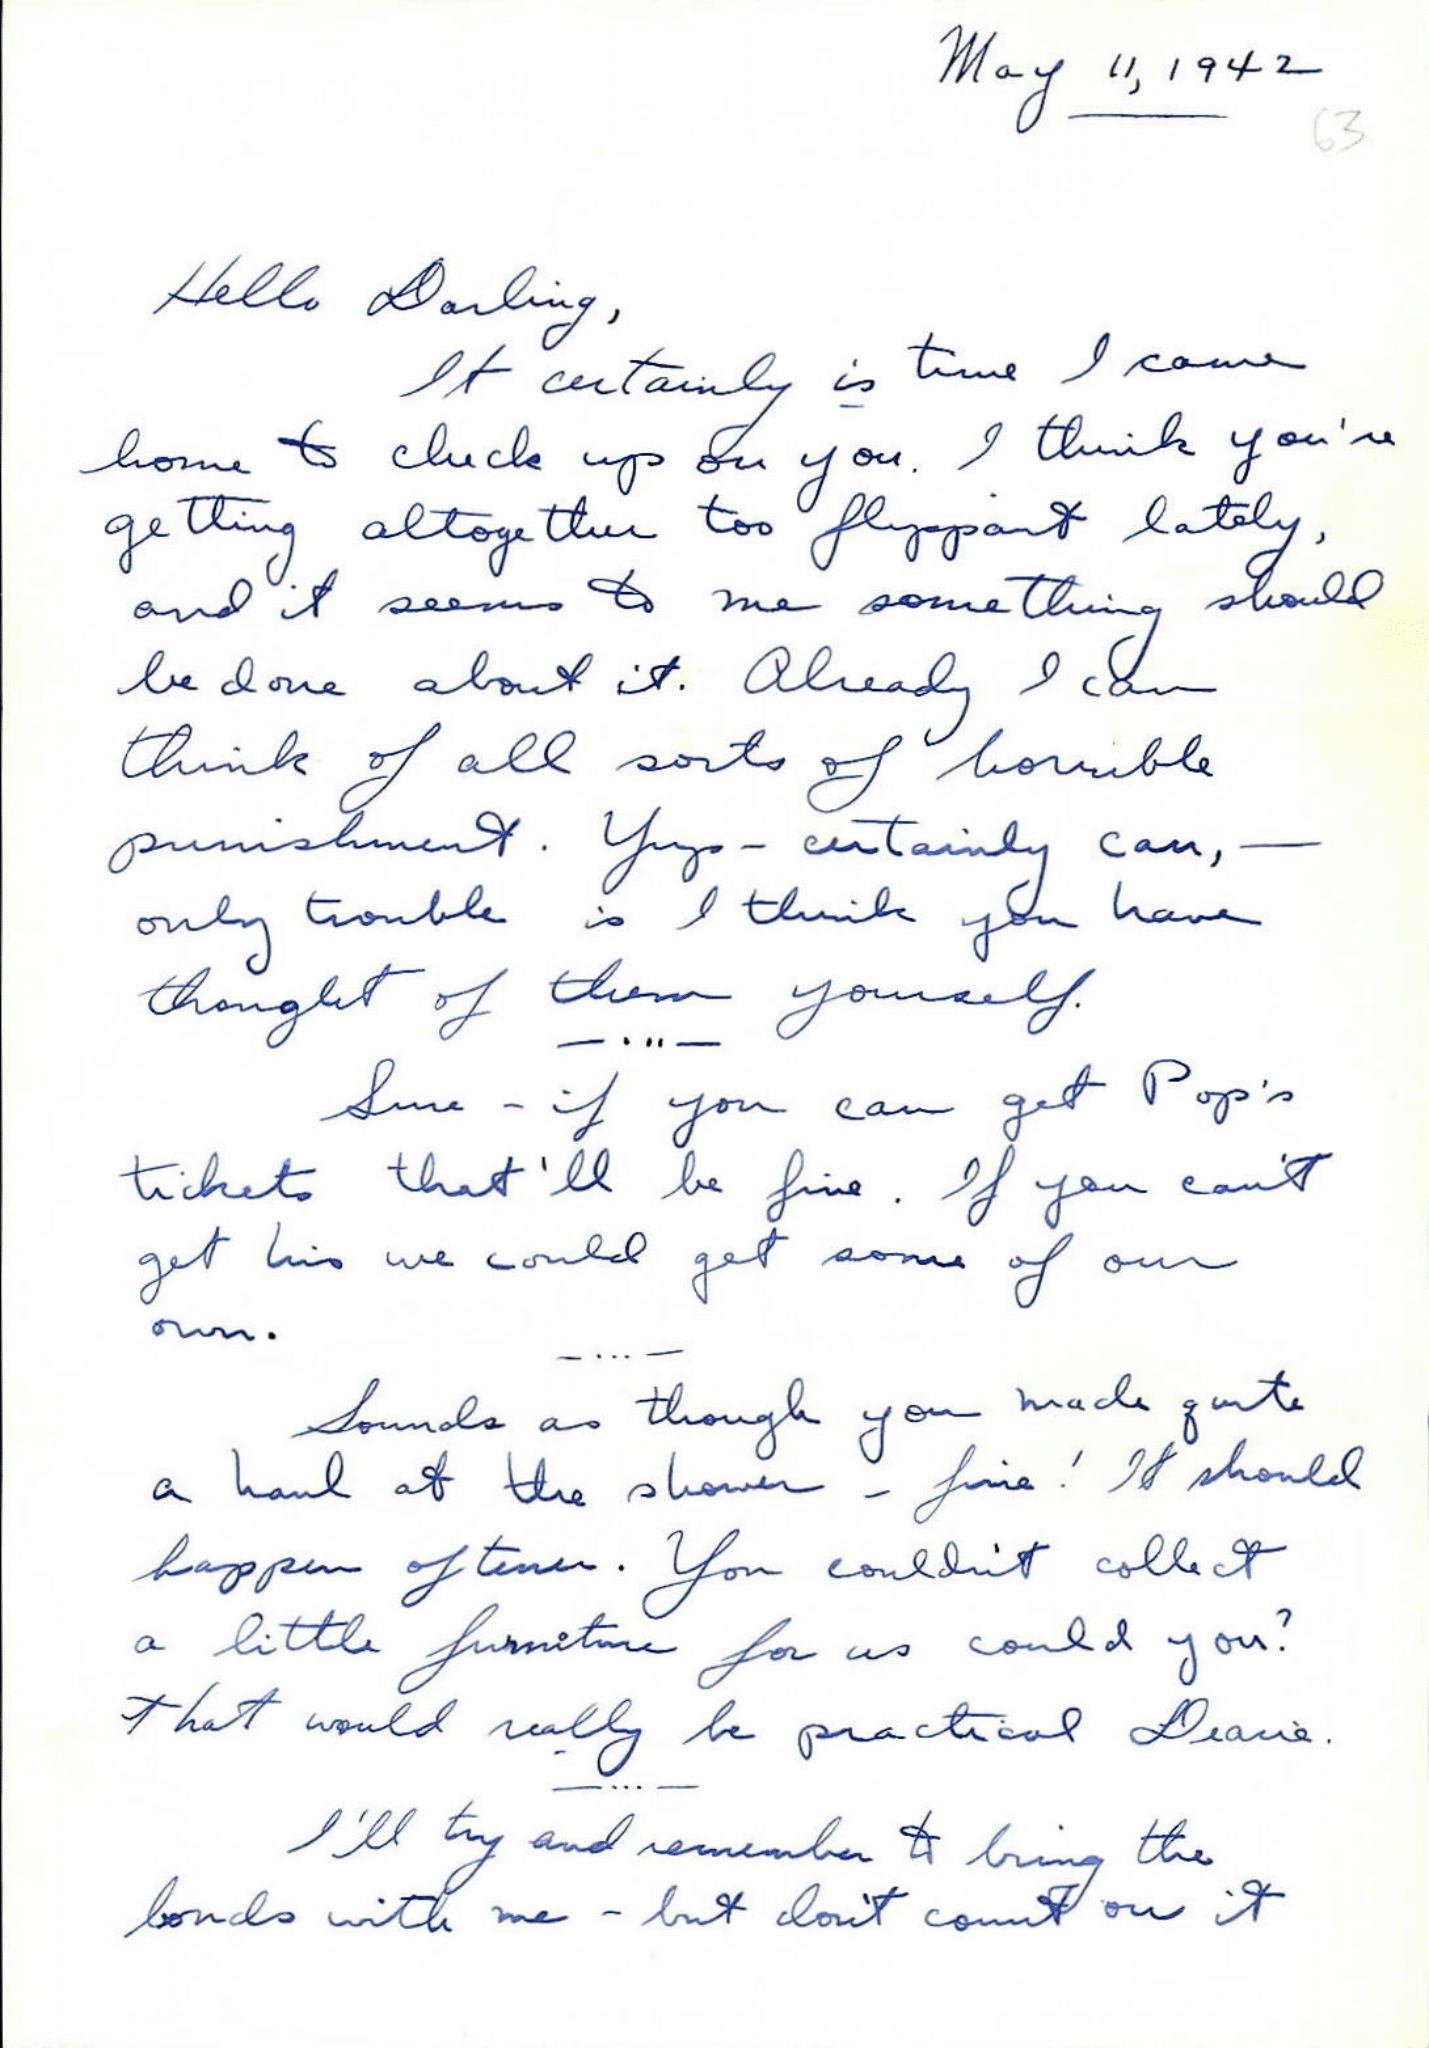 May 11, 1942
63
Hello Darling,
It certainly is time I came
home to check up on you. I think you're
getting altogether too flyppant lately,
and it seems to me something should
be done about it. Already I can
think of all sorts of horrible
punishment. Yup - certainly can, —
only trouble is I think you have
thought of them yourself.
Sure - if you can get Pop's
tickets that'll be fine. If you can't
get his we could get some of our
own.
Sounds as though you made quite
a haul at the shower - fine! It should
happen oftener. You couldn't collect
a little furniture for us could you?
That would really be practical Dearie.
I'll try and remember to bring the
bonds with me - but don't count on it